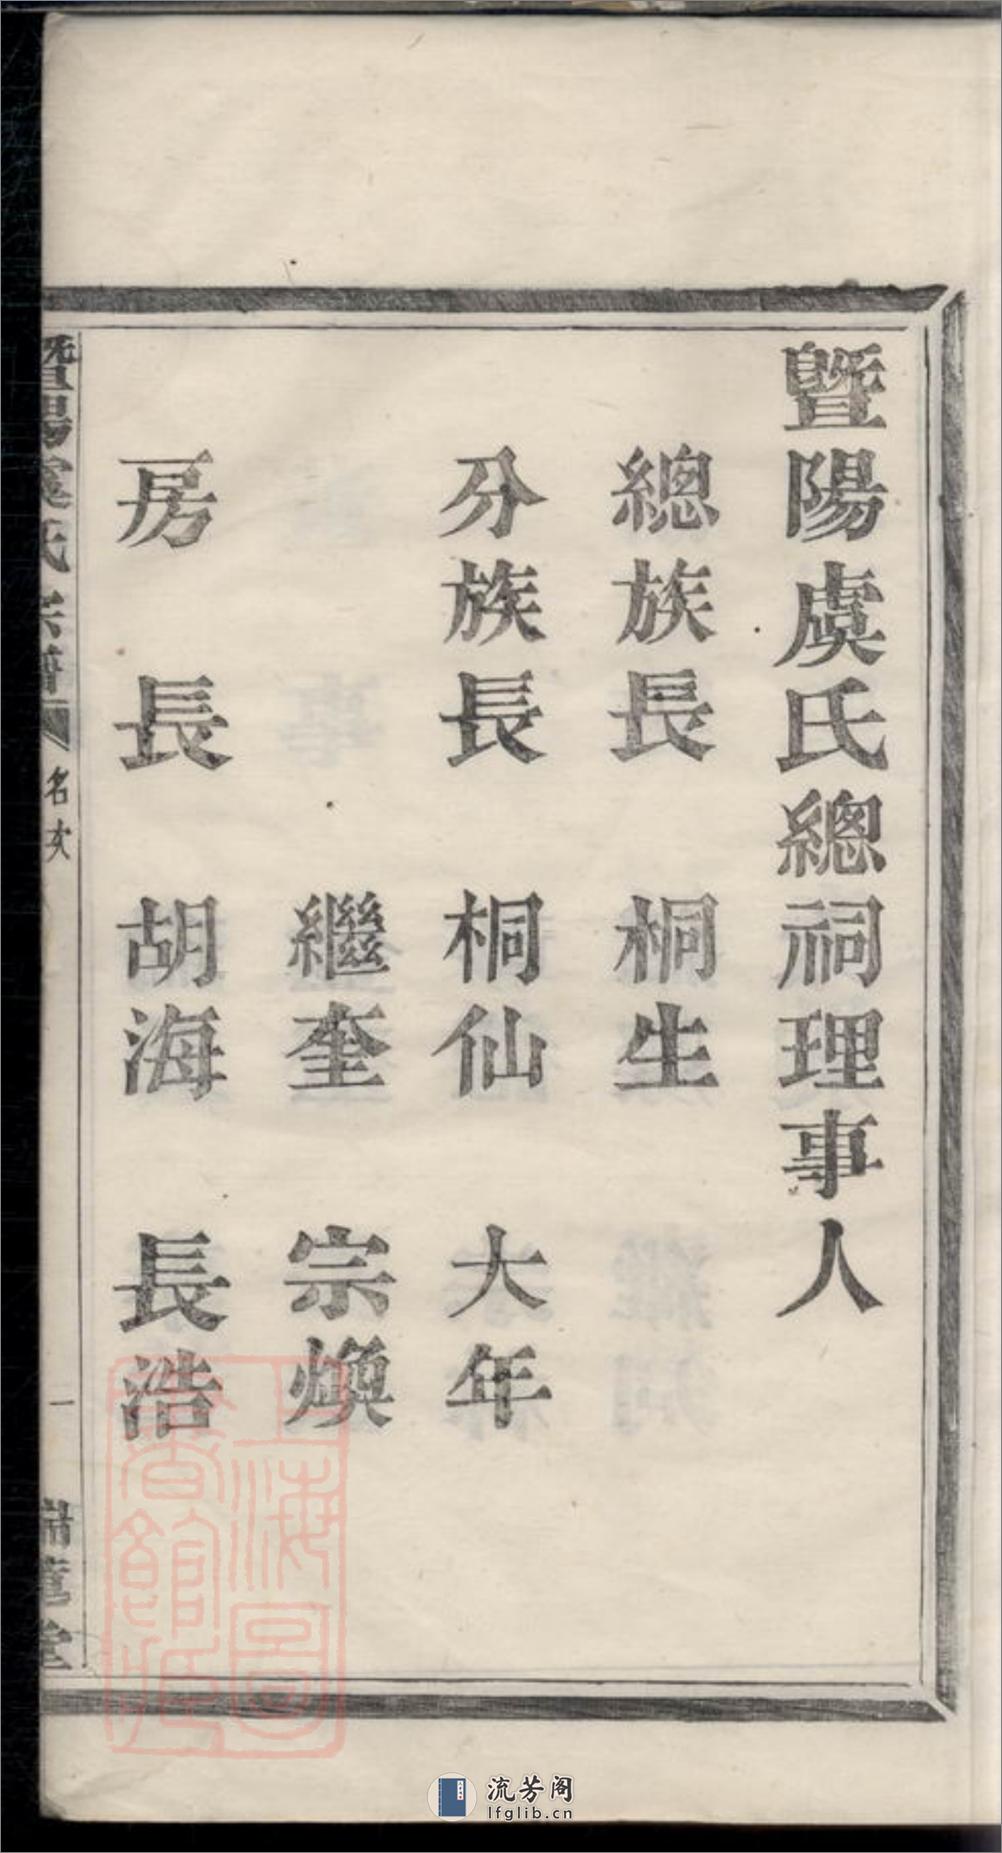 暨陽虞氏總祠理事人
總族長 桐生
分族長 桐仙 大年
繼奎 宗煥
房 長 胡海 長浩
暨陽虞氏宗譜 名次 一
上海圖書館藏
流芳阁
lfglib.cn